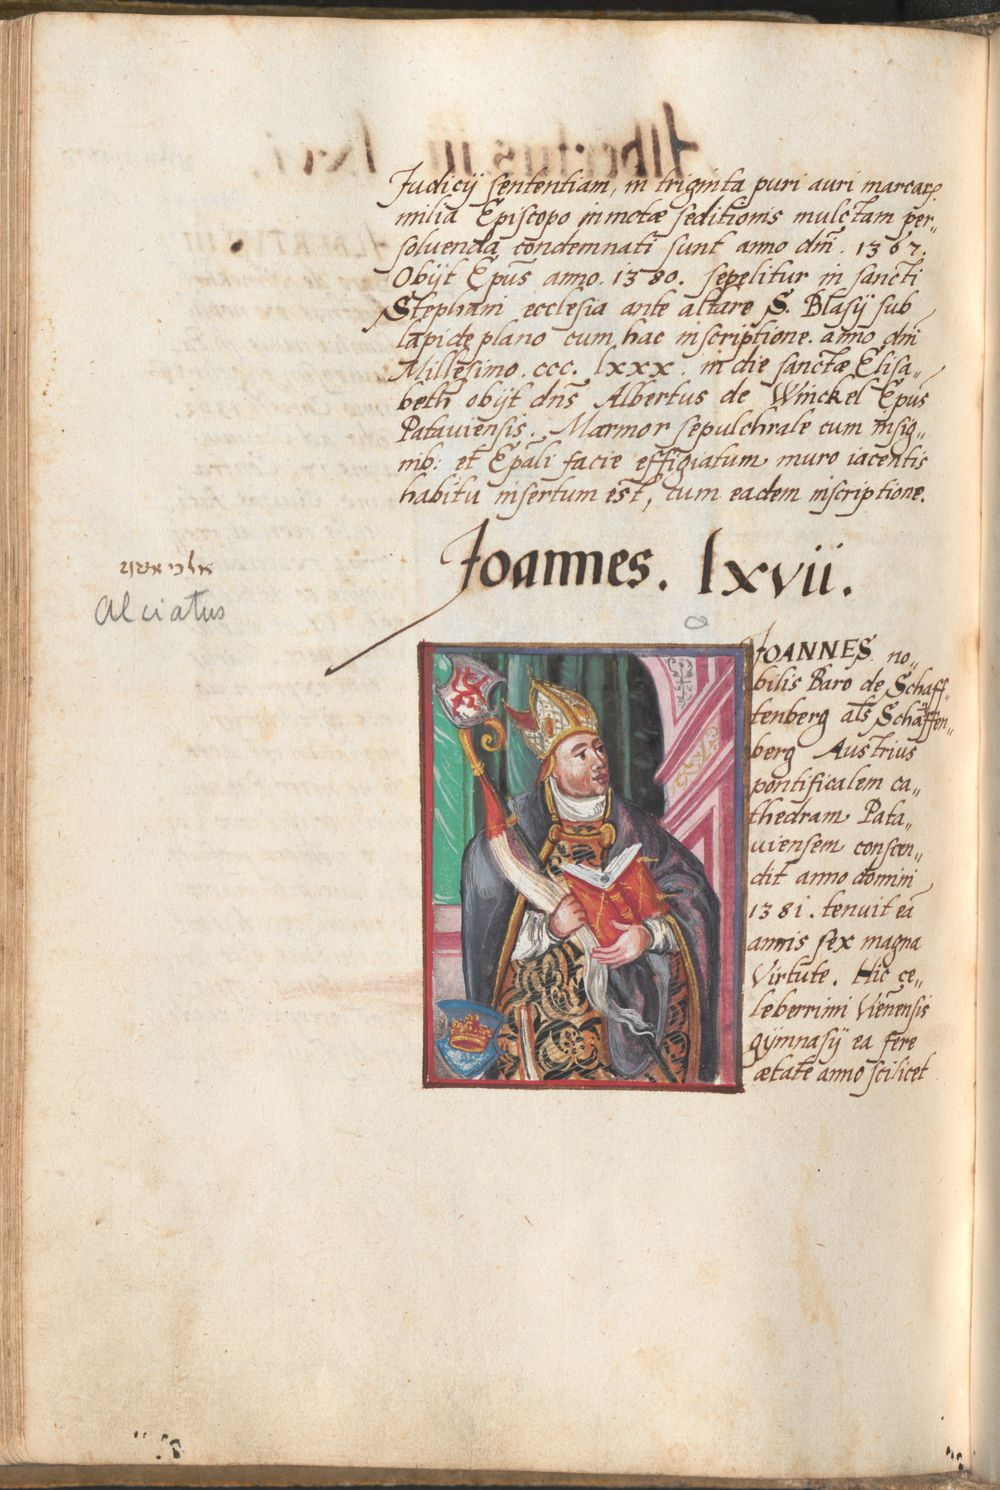 Judicij sententiam, in triginta puri auri marcarꝝ
milia Episcopo in motæ seditionis mulctam per„
soluenda condemnati sunt anno dn̄i. 1367.
Obijt Epūs anno. 1380. sepelitur in sancti
Stephani ecclesia ante altare S. Blasij sub
lapide plano cum hac inscriptione. anno dn̄i
Millesimo. ccc. lxxx. in die sanctæ Elisa„
beth obijt dn̄s Albertus de Winckel Epūs
Patauiensis. Marmor sepulchrale cum insig„
nib: et Ep̄ali facie effigiatum muro iacentis
habitu insertum est, cum eadem inscriptione.
Joannes. lxvii.
Alciatus
JOANNES no„
bilis Baro de Schaff„
tenberg al̄s Schaffen„
berg Austrius
pontificalem ca„
thedram Pata„
uiensem conscen„
dit anno domini
1381. tenuit eā
annis sex magna
Virtute. Hic ce„
leberrimi Viēnensis
gÿmnasÿ ea fere
ætate anno scilicet